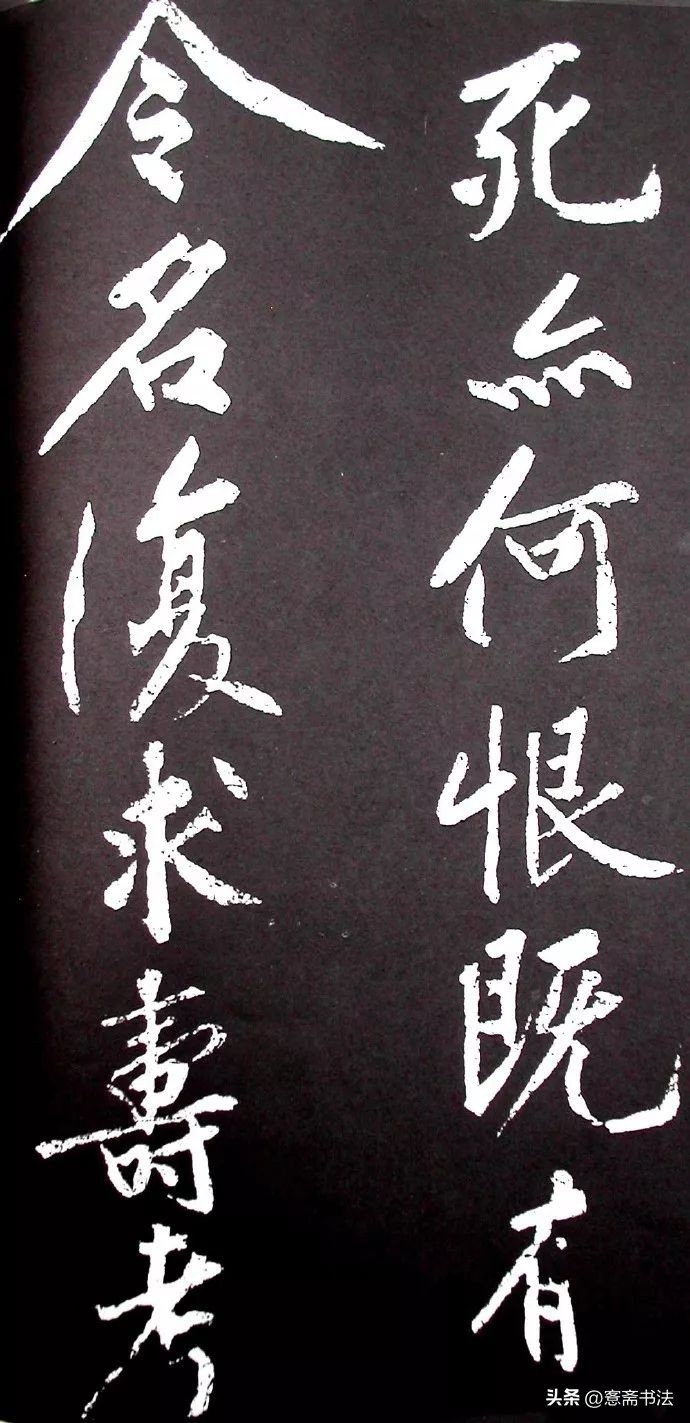 死亦何恨既有
令名復求壽考
头条 @窓斋书法